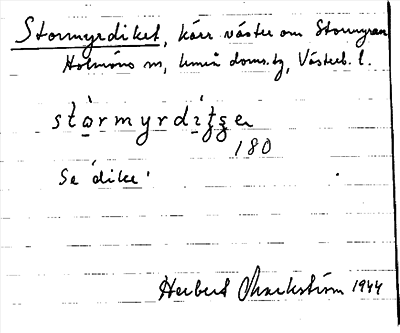 Stormyrdiket, kärr väster om Stormyran
Holmöns sn, Umeå doms.tg, Västerb. l.
stòrmyrdíʈʂe̥
180
Se dike
Herbert Markström 1944